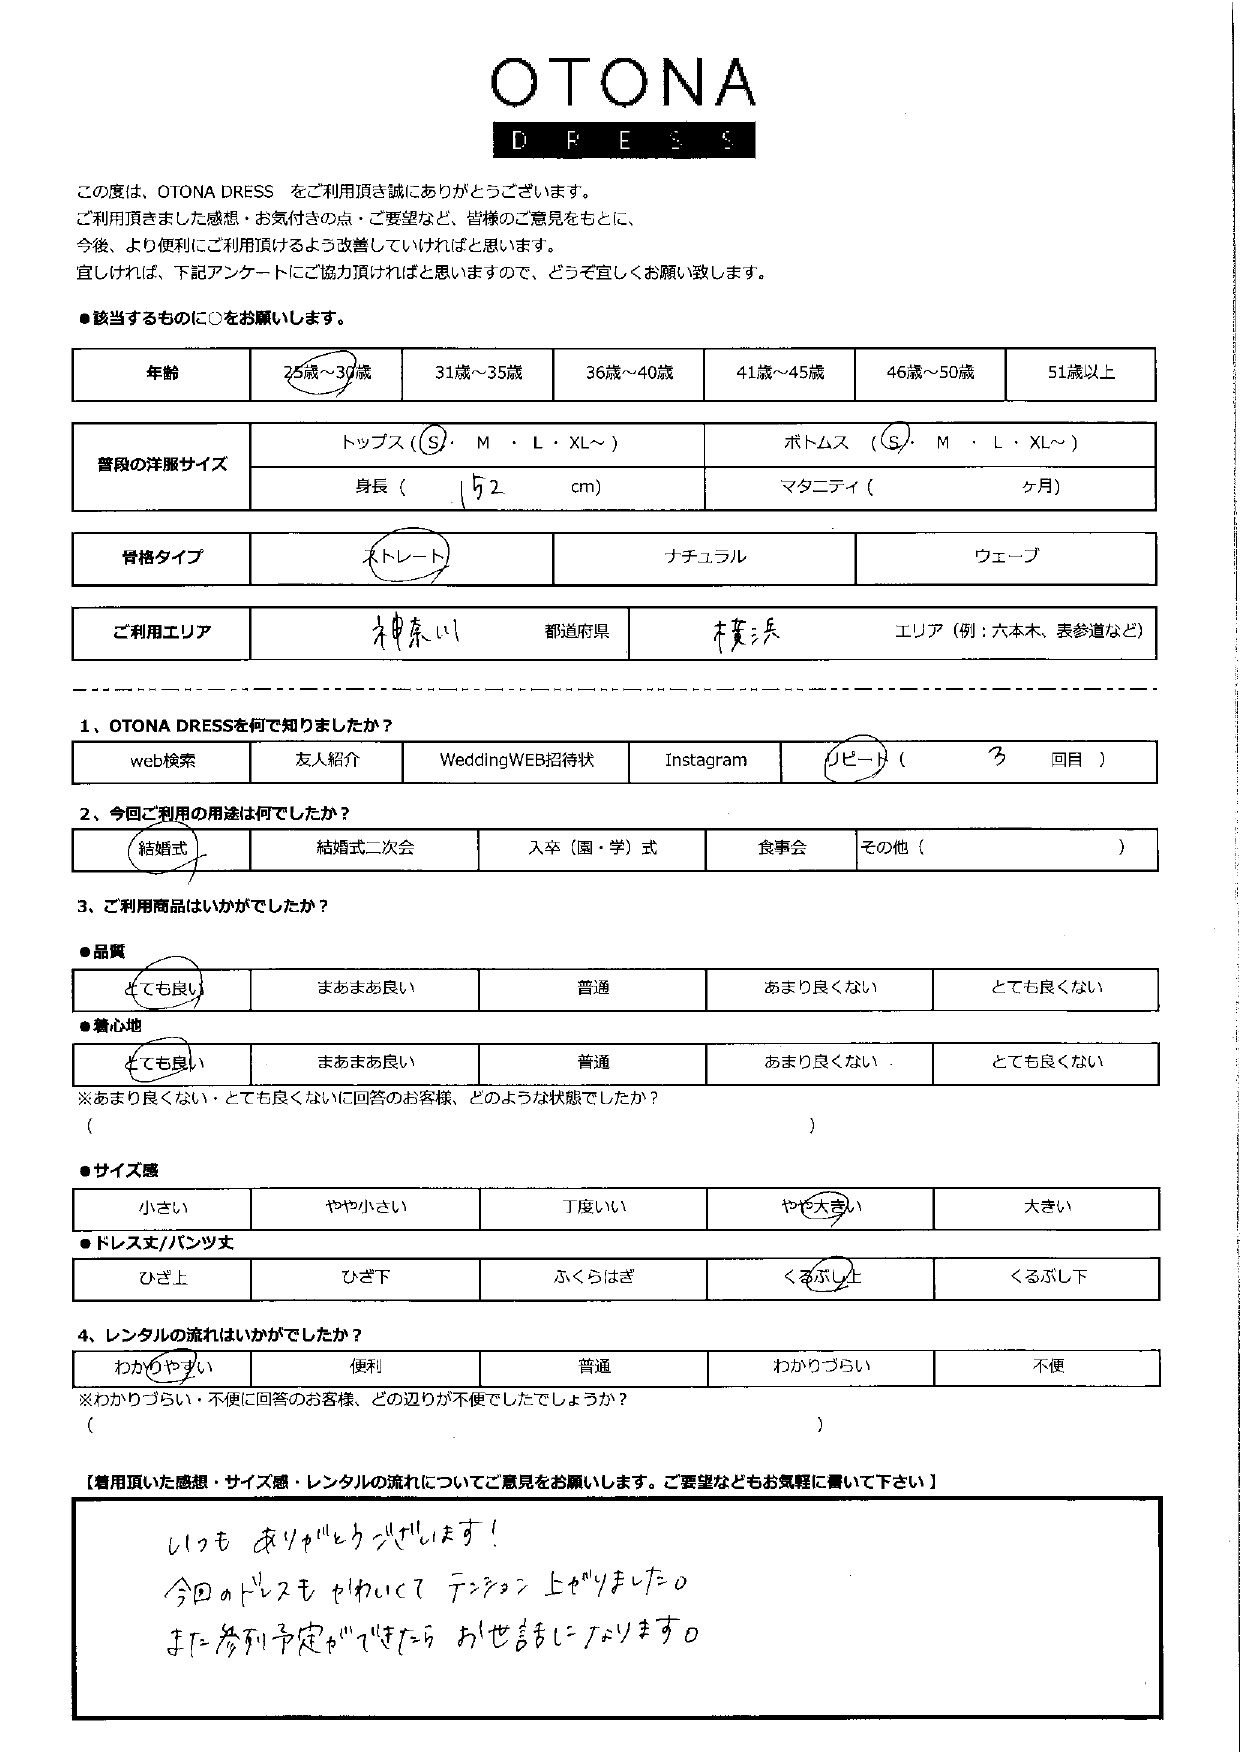 OTONA
DRESS
この度は、OTONA DRESS をご利用頂き誠にありがとうございます。
ご利用頂きました感想・お気付きの点・ご要望など、皆様のご意見をもとに、
今後、より便利にご利用頂けるよう改善していければと思います。
宜しければ、下記アンケートにご協力頂ければと思いますので、どうぞ宜しくお願い致します。
●該当するものに○をお願いします。
年齢 25歳～30歳 31歳～35歳 36歳～40歳 41歳～45歳 46歳～50歳 51歳以上
普段の洋服サイズ
トップス ( S ・ M ・ L ・ XL～ ) ボトムス ( S ・ M ・ L ・ XL～ )
身長 ( 152 cm) マタニティ ( ヶ月)
骨格タイプ ストレート ナチュラル ウェーブ
ご利用エリア 神奈川 都道府県 横浜 エリア（例：六本木、表参道など）
1、OTONA DRESSを何で知りましたか？
web検索 友人紹介 WeddingWEB招待状 Instagram リピート ( 3 回目 )
2、今回ご利用の用途は何でしたか？
結婚式 結婚式二次会 入卒（園・学）式 食事会 その他 ( )
3、ご利用商品はいかがでしたか？
●品質
とても良い まあまあ良い 普通 あまり良くない とても良くない
●着心地
とても良い まあまあ良い 普通 あまり良くない とても良くない
※あまり良くない・とても良くないに回答のお客様、どのような状態でしたか？
( )
●サイズ感
小さい やや小さい 丁度いい やや大きい 大きい
●ドレス丈/パンツ丈
ひざ上 ひざ下 ふくらはぎ くるぶし上 くるぶし下
4、レンタルの流れはいかがでしたか？
わかりやすい 便利 普通 わかりづらい 不便
※わかりづらい・不便に回答のお客様、どの辺りが不便でしたでしょうか？
( )
【着用頂いた感想・サイズ感・レンタルの流れについてご意見をお願いします。ご要望などもお気軽に書いて下さい】
いつも ありがとうございます！
今回のドレスも かわいくて テンション 上がりました。
また参列予定ができたら お世話になります。